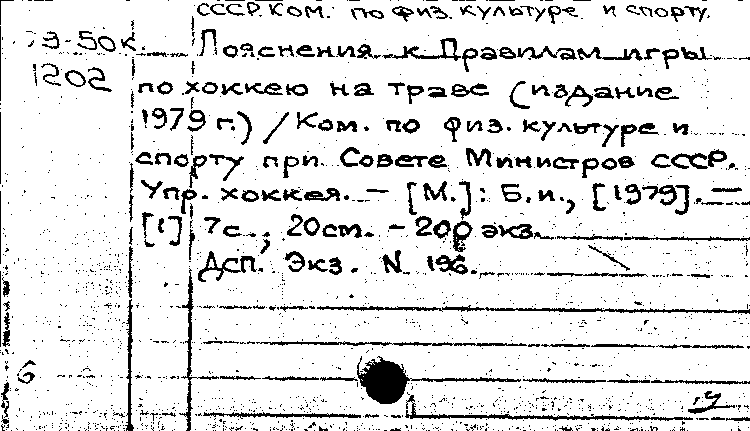 СССР. Ком. по физ. культуре и спорту.
79-50к. Пояснения к Правилам игры
1202 по хоккею на траве (издание
1979 г.) / Ком. по физ. культуре и
спорту при Совете Министров СССР.
Упр. хоккея. — [М.]: Б.и., [1979]. —
[1], 7с.; 20см. - 200 экз.
Дсп. Экз. N 196.
б